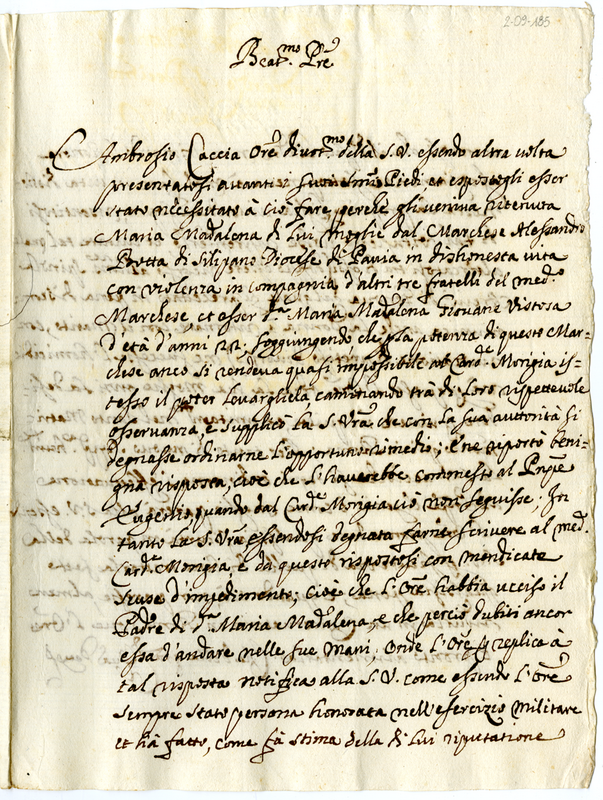 2-09-185
Beat.mo Pre
Ambrosio Caccia Ore divot.mo della S.V. essendo altra volta
presentatosi avanti i suoi Piedi, et espostogli esser
stato necessitato à ciò fare, perche gli veniva ritenuta
Maria Madalena di Lui moglie dal Marchese Alessandro
Botta di Silvano Diocese di Pavia in dishonesta vita
con violenza in compagnia d'altri tre fratelli del med.o
Marchese, et esser d.a Maria Madalena Giovane Vistosa
d'età d'anni 22. soggiungendo che p la potenza di questo Mar-
chese anco si rendeva quasi impossibile al Card.e Morigia is-
tesso il poter Levargliela caminando trà di Loro rispettevole
osservanza, e supplicò La S. Vra che con La sua autorità si
degnasse ordinarne l'opportuno rimedio; e ne riportò beni-
gna risposta, cioè che l'haverebbe commesso al Pnpe
Eugenio, quando dal Card.e Morigia ciò non seguisse; In
tanto La S. Vra essendosi degnata farne scrivere al med.
Card.e Morigia e da questo rispostosi con mendicate
scuse d'impedimento; cioè che l'Ore habbia ucciso il
Padre di d.a Maria Madalena, e che perciò dubiti ancor
essa d'andare nelle sue mani, onde l'Ore p replica à
tal risposta notifica alla S.V. come essendo l'Ore
sempre stato persona honorata nell'esercizio militare
et hà fatto, come fà stima della di Lui riputatione